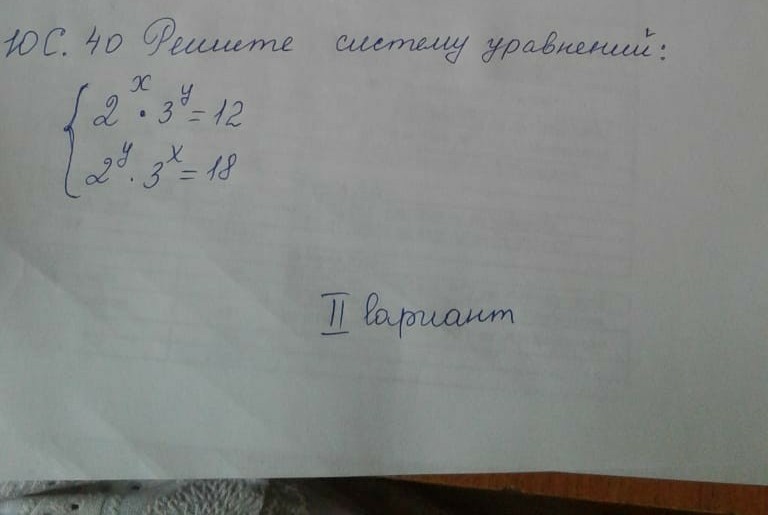 10С. 40 Решите систему уравнений:
2^x · 3^y = 12
2^y · 3^x = 18
II вариант